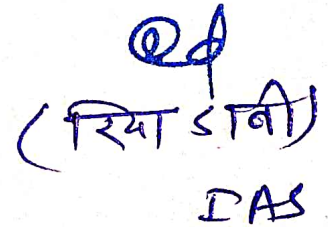 (रिया डाबी)
IAS